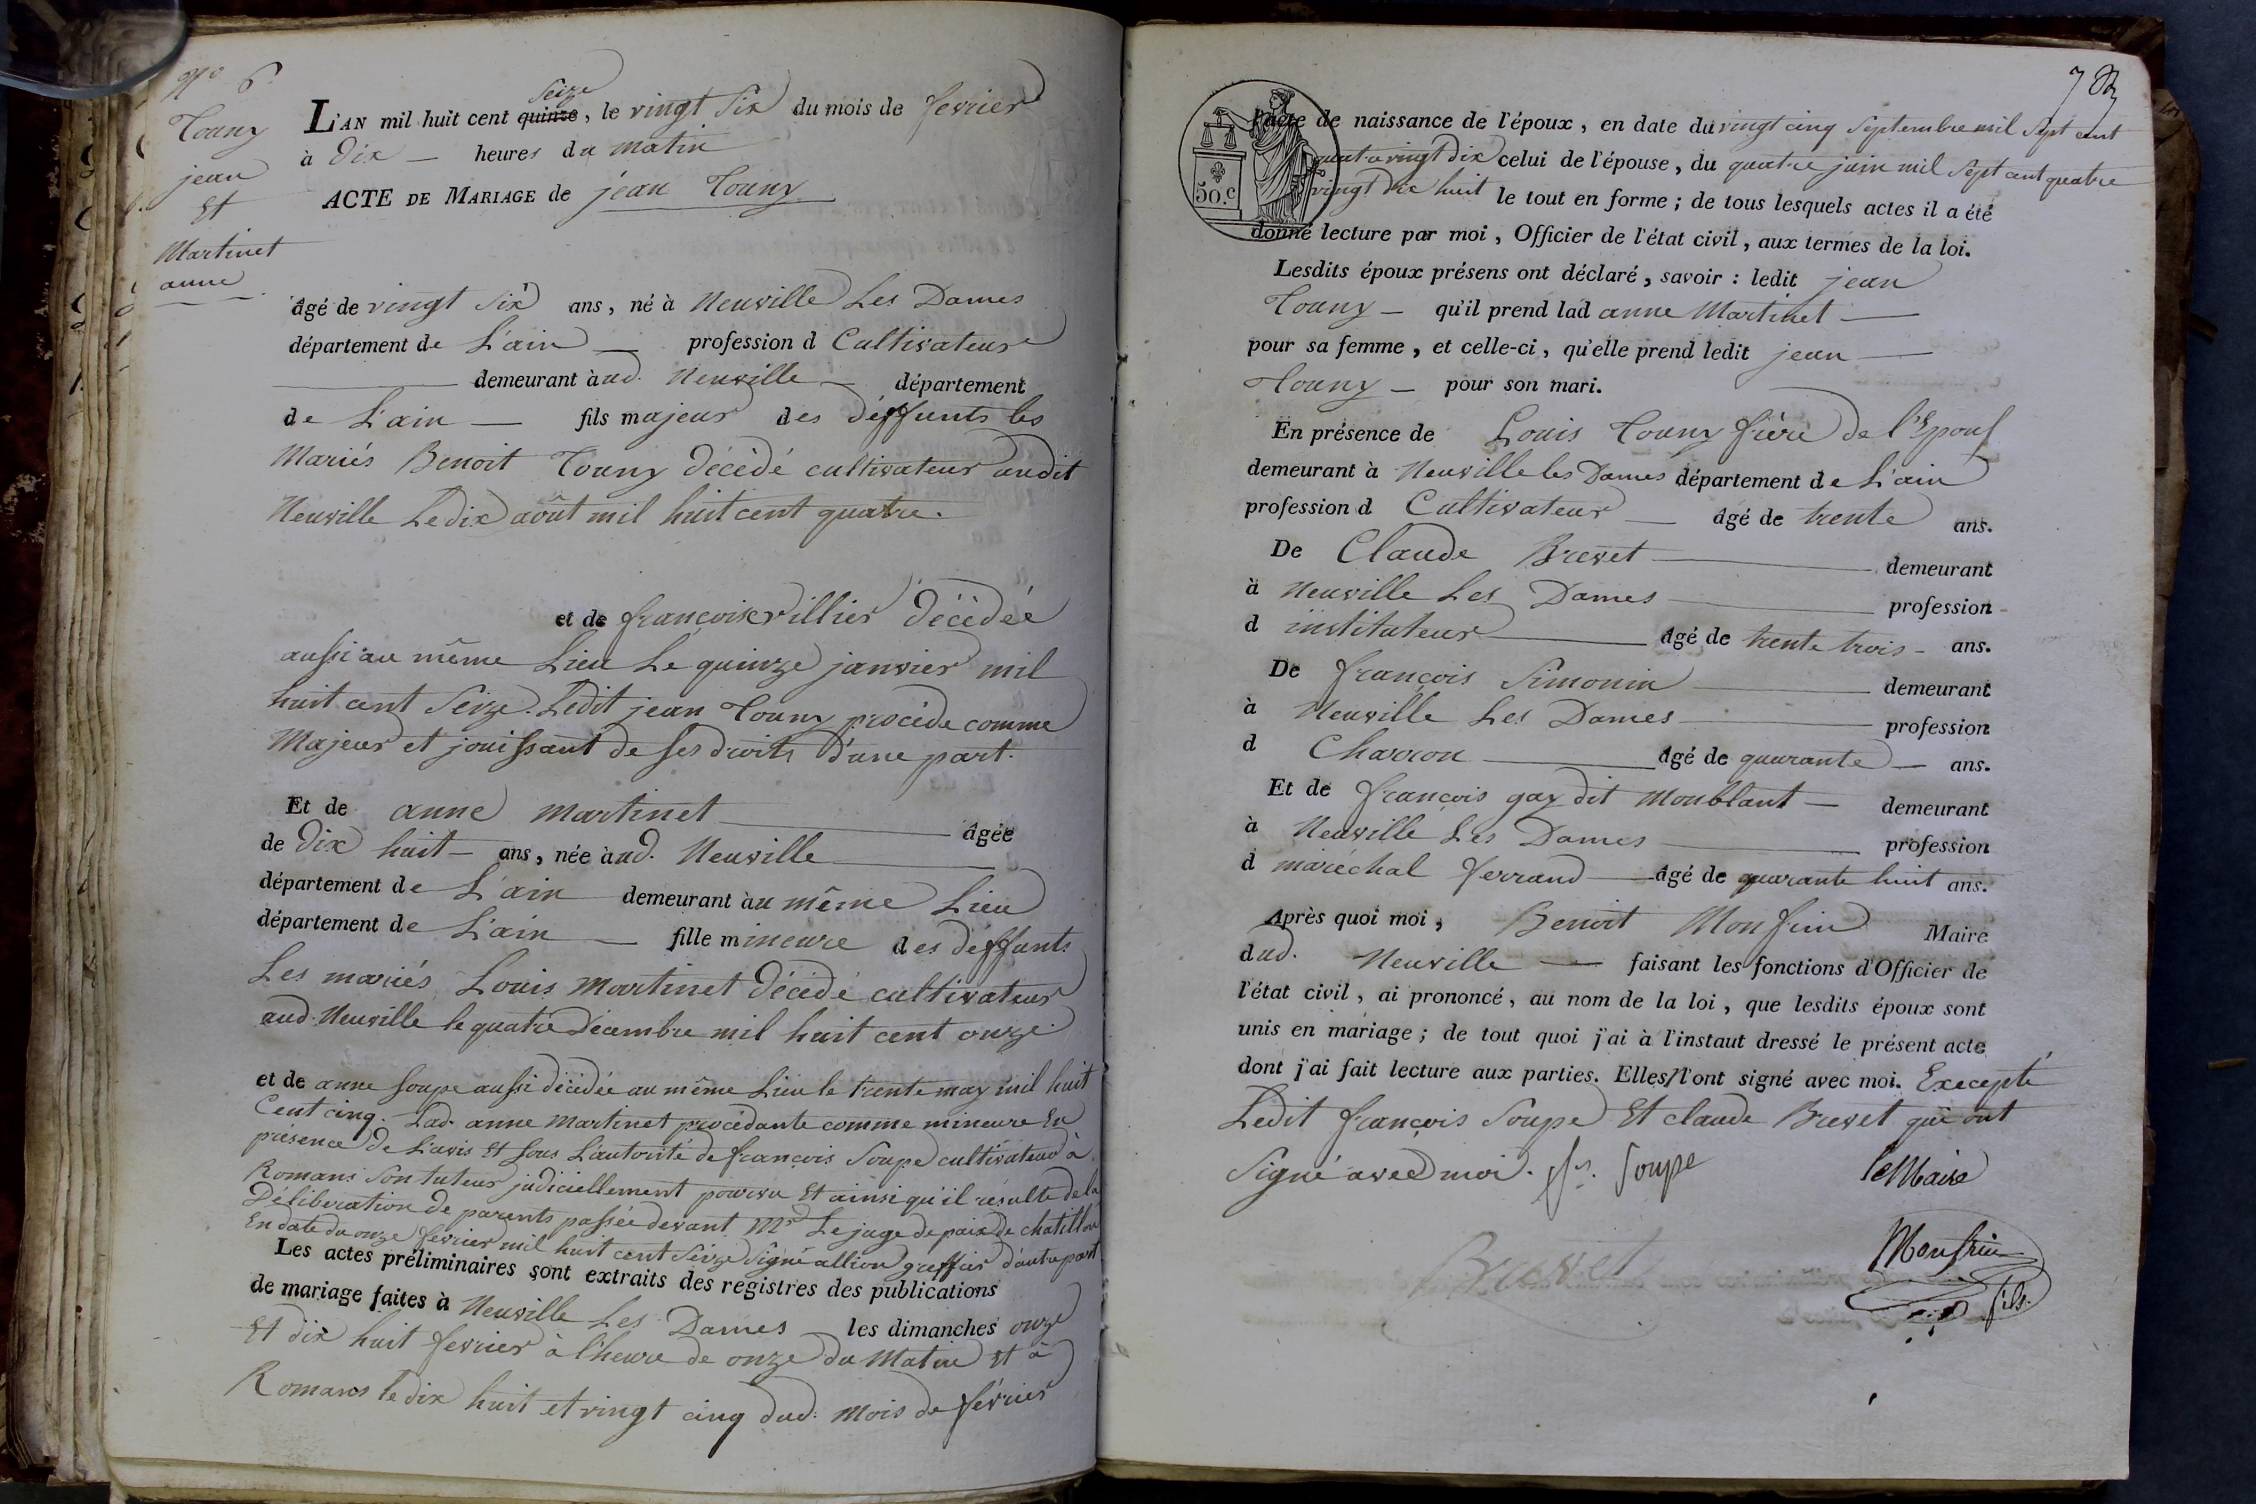 N° 6.
Touny
jean
Et
Martinet
anne
L'AN mil huit cent quinze seize, le vingt Six du mois de fevrier
à Dix heures du matin
ACTE DE MARIAGE de jean Touny
âgé de vingt Six ans, né à Neuville Les Dames
département de L'ain profession d Cultivateur
demeurant àud. Neuville département
de L'ain fils majeur des déffunts les
Mariés Benoit Touny décédé cultivateur audit
Neuville Le dix août mil huit cent quatre.
et de françoise villier décédée
aussi au même Lieu Le quinze janvier mil
huit cent Seize. Ledit jean Touny procéde comme
Majeur et jouissant de ses droits D'une part.
Et de anne Martinet âgée
de Dix huit ans, née àud. Neuville
département de L'ain demeurant àu même Lieu
département de L'ain fille mineure des déffunts
Les mariés Louis Martinet décédé cultivateur
aud. Neuville le quatre Décembre mil huit cent onze.
et de anne Soupe aussi décédée au même Lieu le trente may mil huit
Cent cinq. Lad. anne Martinet procédante comme mineure En
présence de L'avis Et sous L'autorité de françois Soupe cultivateur à
Romans Son tuteur judiciellement pourvu Et ainsi qu'il résulte de la
Déliberation de parents passée devant Mr Le juge de paix de chatillon
En date du onze fevrier mil huit cent Seize Signé allion greffier d'autre part
Les actes préliminaires sont extraits des registres des publications
de mariage faites à Neuville Les Dames les dimanches onze
Et dix huit fevrier à l'heure de onze du Matin Et à
Romans le dix huit et vingt cinq dud. mois de février
7
50.c
l'acte de naissance de l'époux, en date du vingt cinq Septembre mil Sept cent
quatre vingt dix celui de l'épouse, du quatre juin mil Sept cent quatre
vingt dix huit le tout en forme; de tous lesquels actes il a été
donné lecture par moi, Officier de l'état civil, aux termes de la loi.
Lesdits époux présens ont déclaré, savoir: ledit jean
Touny qu'il prend lad anne Martinet
pour sa femme, et celle-ci, qu'elle prend ledit jean
Touny pour son mari.
En présence de Louis Touny frère de l'Epoux
demeurant à Neuville les Dames département de L'ain
profession d Cultivateur âgé de trente ans.
De Claude Brevet demeurant
à Neuville Les Dames profession
d instituteur âgé de trente trois ans.
De françois Simonin demeurant
à Neuville Les Dames profession
d Charron âgé de quarante ans.
Et de françois gay dit Monblant demeurant
à Neuville Les Dames profession
d maréchal ferrand âgé de quarante huit ans.
Après quoi moi, Benoit Monfrin Maire
dud. Neuville faisant les fonctions d'Officier de
l'état civil, ai prononcé, au nom de la loi, que lesdits époux sont
unis en mariage; de tout quoi j'ai à l'instaut dressé le présent acte
dont j'ai fait lecture aux parties. Elles l'ont signé avec moi. Excepté
Ledit françois Soupe Et claude Brevet qui ont
Signé avec moi. fs. Soupe le Maire
Brevet Monfrin
fils.